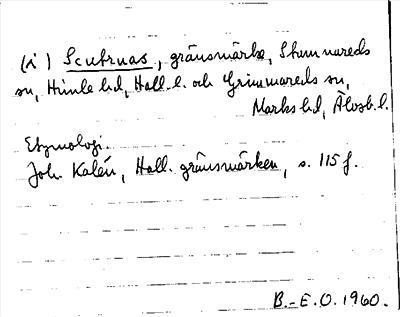 (i) Scutrnas, gränsmärke, Stamnareds
sn, Himle hd, Hall. l. och Grimmareds sn,
Marks hd, Älvsb. l.
Etymologi.
Joh. Kalén, Hall. gränsmärken, s. 115 f.
B.-E.O. 1960.